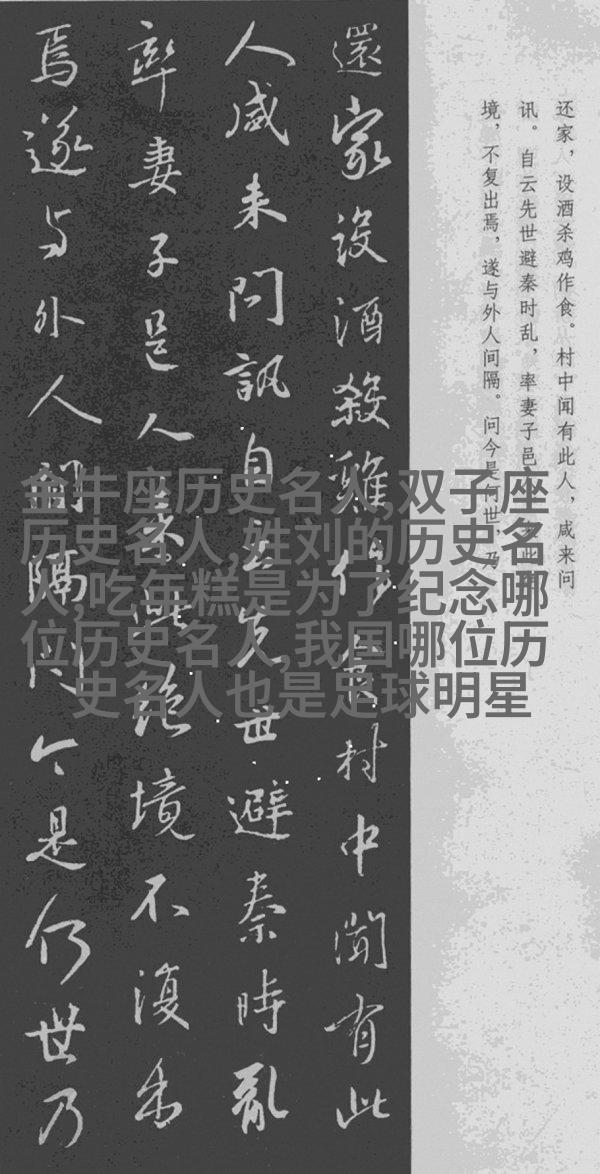 还家，设酒杀鸡作食。村中闻有此人，咸来问
讯。自云先世避秦时乱，率妻子邑
境，不复出焉，遂与外人间隔。问今是何世，乃
還家設酒殺雞作食村中聞有此
人咸来問訊自云先世避秦時亂
率妻子邑人来此絶境不復出
焉遂与外人間隔问今是何世乃
金牛座历史名人,双子座
历史名人,姓刘的历史名
人,吃年糕是为了纪念哪
位历史名人,我国哪位历
史名人也是足球明星